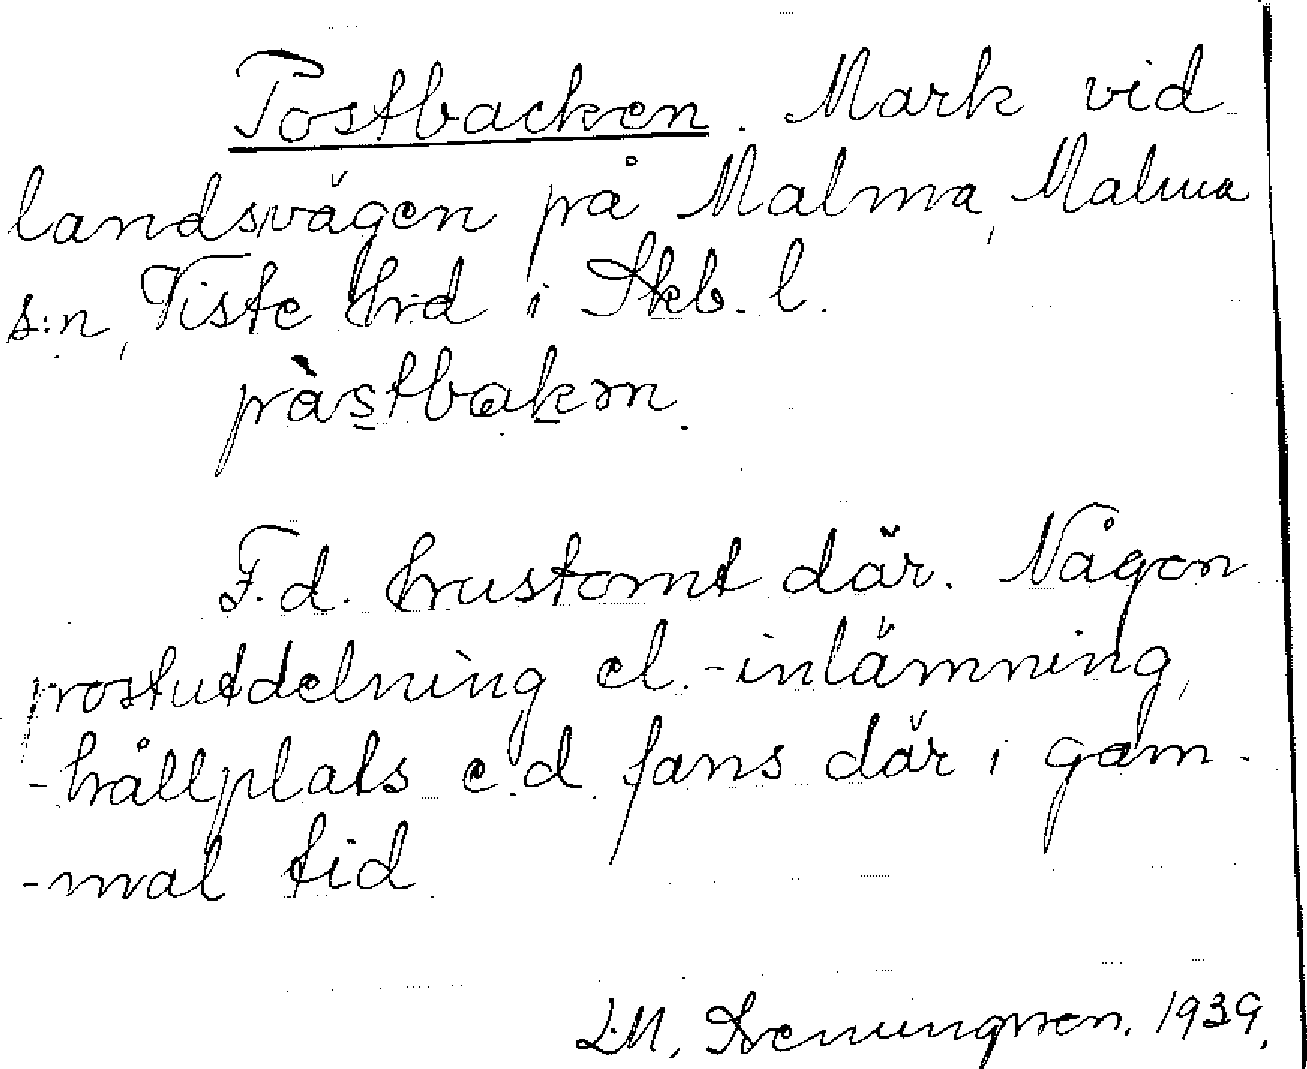 Postbacken. Mark vid
landsvägen på Malma, Malma
s:n, Viste hrd i Skb. l.
pàstbakɘn.
F.d. hustomt där. Någon
postutdelning el. -inlämning,
-hållplats e.d. fans där i gam-
-mal tid.
L.M. 1939.